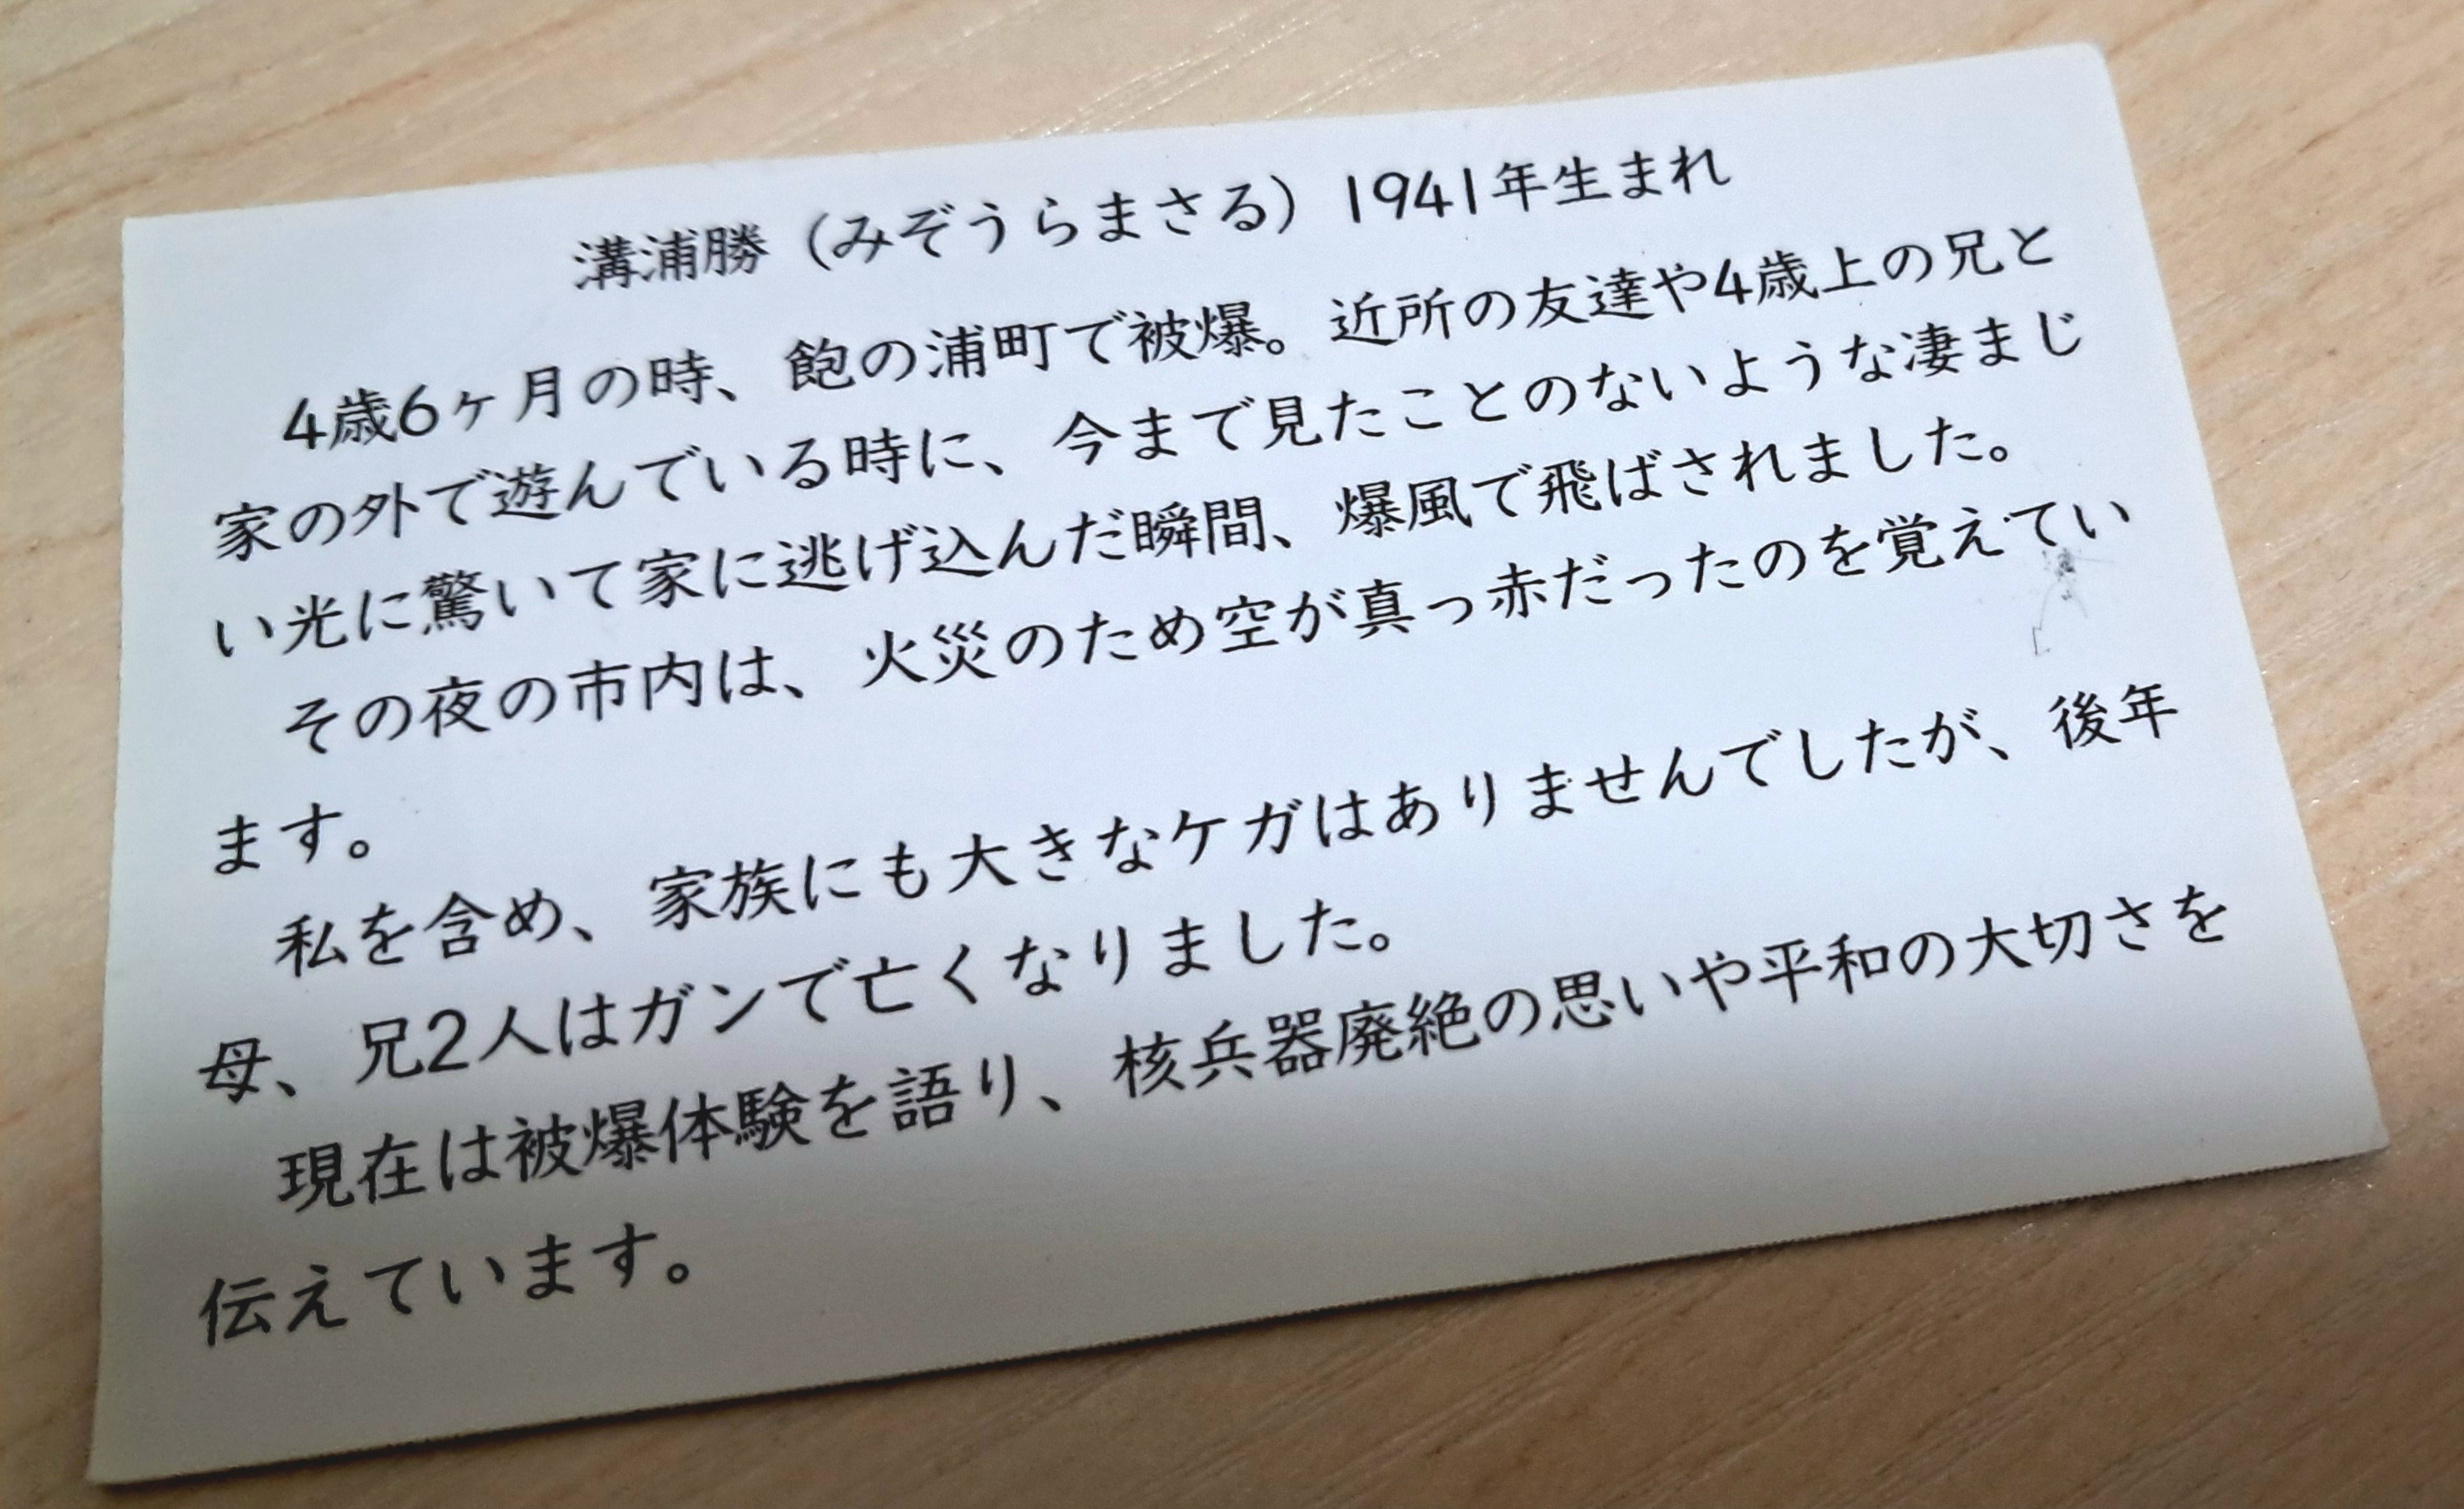 溝浦勝（みぞうらまさる）1941年生まれ
4歳6ヶ月の時、飽の浦町で被爆。近所の友達や4歳上の兄と
家の外で遊んでいる時に、今まで見たことのないような凄まじ
い光に驚いて家に逃げ込んだ瞬間、爆風で飛ばされました。
その夜の市内は、火災のため空が真っ赤だったのを覚えてい
ます。
私を含め、家族にも大きなケガはありませんでしたが、後年
母、兄2人はガンで亡くなりました。
現在は被爆体験を語り、核兵器廃絶の思いや平和の大切さを
伝えています。